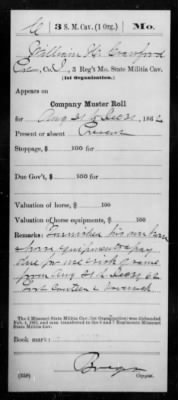 C | 3 S. M. Cav. (1 Org.) | Mo.
William H. Crawford
Co. I, 3 Reg't Mo. State Militia Cav.
(1st Organization.)
Appears on
Company Muster Roll
for Aug 31 to Dec 31, 1862
Present or absent Present
Stoppage, $ 100 for
Due Gov't, $ 100 for
Valuation of horse, $ 100
Valuation of horse equipments, $ 100
Remarks: Furnished his own horse
& horse equipments & pay
due for use & risk of same
from Aug 31 to Dec 31 62
canteen & haversack
The 3 Missouri State Militia Cav. (1st Organization) was disbanded
Feb. 4, 1863, and men transferred to the 6 and 7 Regiments Missouri
State Militia Cav.
Book mark:
Copyist.
(358)